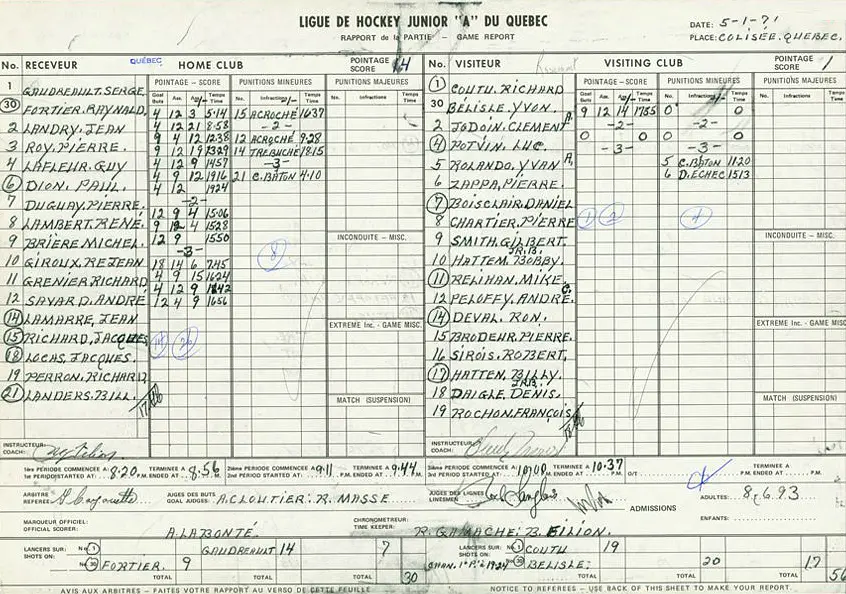 LIGUE DE HOCKEY JUNIOR "A" DU QUEBEC
RAPPORT de la PARTIE - GAME REPORT
DATE: 5-1-71
PLACE: COLISÉE, QUEBEC.
No. RECEVEUR QUÉBEC HOME CLUB POINTAGE SCORE 14
POINTAGE - SCORE PUNITIONS MINEURES PUNITIONS MAJEURES
Goal Buts Ass. Temps Time No. Infractions Temps Time No. Infractions Temps Time
1 GAUDREAULT, SERGE
30 FORTIER, RAYNALD
2 LANDRY, JEAN
3 ROY, PIERRE
4 LAFLEUR, GUY
6 DION, PAUL
7 DUGUAY, PIERRE
8 LAMBERT, RENÉ
9 BRIÈRE MICHEL
10 GIROUX, REJEAN
11 GRENIER RICHARD
12 SAVARD, ANDRÉ
14 LAMARRE, JEAN
15 RICHARD, JACQUES
18 LOCAS, JACQUES
19 PERRON, RICHARD
21 LANDERS, BILL
4 12 3 5:14
4 12 21 8:58
9 4 12 12:38
9 12 19 13:29
4 12 9 1457
4 9 12 1916
4 12 1924
-2-
12 9 4 15:06
9 12 4 1528
12 9 1550
-3-
18 14 6 7:45
4 9 15 1624
4 12 9 1642
12 4 9 1656
15 ACROCHÉ 1637
-2-
12 ACROCHÉ 9:28
14 TREBUCHÉ 18:15
-3-
21 C. BÂTON 4:10
8
INCONDUITE - MISC.
EXTREME Inc. - GAME MISC.
MATCH (SUSPENSION)
INSTRUCTEUR: COACH:
No. VISITEUR VISITING CLUB POINTAGE SCORE 1
POINTAGE - SCORE PUNITIONS MINEURES PUNITIONS MAJEURES
1 COUTU, RICHARD
30 BÉLISLE, YVON
2 JODOIN, CLEMENT A.
4 POTVIN, LUC
5 ROLANDO, YVAN A.
6 ZAPPA, PIERRE
7 BOISCLAIR, DANIEL
8 CHARTIER, PIERRE
9 SMITH, GILBERT
10 HATTEM, BOBBY
11 RELIHAN, MIKE C.
12 PELOFFY, ANDRÉ
14 DEVAL, RON
15 BRODEUR, PIERRE
16 SIROIS, ROBERT
17 HATTEN, BILLY
18 DAIGLE, DENIS
19 ROCHON, FRANÇOIS
9 12 14 1755
-2-
0 0
-3-
0 0
-2-
0 0
-3-
5 C. BÂTON 1120
6 D. ECHEC 1513
INCONDUITE - MISC.
EXTREME Inc. - GAME MISC.
MATCH (SUSPENSION)
INSTRUCTEUR: COACH:
1ère PÉRIODE COMMENCE A: 1st PERIOD STARTED AT: 8:20 TERMINEE A 8:56
2ième PÉRIODE COMMENCE A: 2nd PERIOD STARTED AT: 9:11 TERMINEE A 9:44
3ième PÉRIODE COMMENCE A: 3rd PERIOD STARTED AT: 10:00 TERMINEE A 10:37
O/T P.M. ENDED AT: P.M.
ARBITRE REFEREE
JUGES DES BUTS GOAL JUDGES: A. CLOUTIER: R. MASSE
JUGES DES LIGNES LINESMEN
ADMISSIONS
ADULTES: 8,693
ENFANTS:
MARQUEUR OFFICIEL: OFFICIAL SCORER: A. LABONTÉ
CHRONOMETREUR: TIME KEEPER: R. GAMACHE: B. FILION
LANCERS SUR: SHOTS ON:
No 1 GAUDREAULT 14 7
No 30 FORTIER. 9
TOTAL TOTAL TOTAL 30
LANCERS SUR: SHOTS ON:
No 1 COUTU 19
No 30 BÉLISLE: 20 17
TOTAL TOTAL TOTAL 56
AVIS AUX ARBITRES - FAITES VOTRE RAPPORT AU VERSO DE CETTE FEUILLE
NOTICE TO REFEREES - USE BACK OF THIS SHEET TO MAKE YOUR REPORT.